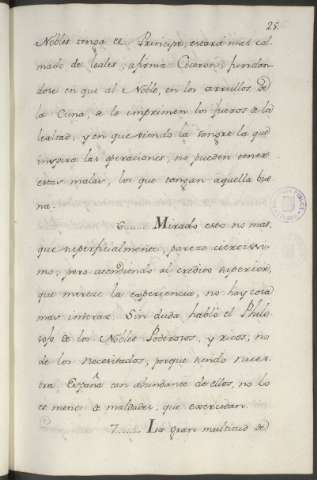 25.
Nobles tenga el Principe, estará mas col
mado de leales, afirma Ciceron, fundan
dose en que al Noble, en los arrullos de
la Cuna, se le imprimen los fueros de la
lealtad, y en que siendo la sangre la que
inspira las operaciones, no pueden tener
estas malas, los que tengan aquella bue
na.
6 Mirado esto no mas,
que superficialmente, parece certissi
mo, pero atendiendo al credito superior,
que merece la experiencia, no hay cosa
mas incierta. Sin duda habló el Philo
sofo de los Nobles Poderosos, y ricos, no
de los necesitados, porque siendo nues
tra España tan abundante de ellos, no lo
es menos de maldades, que executan.
7 La gran multitud de